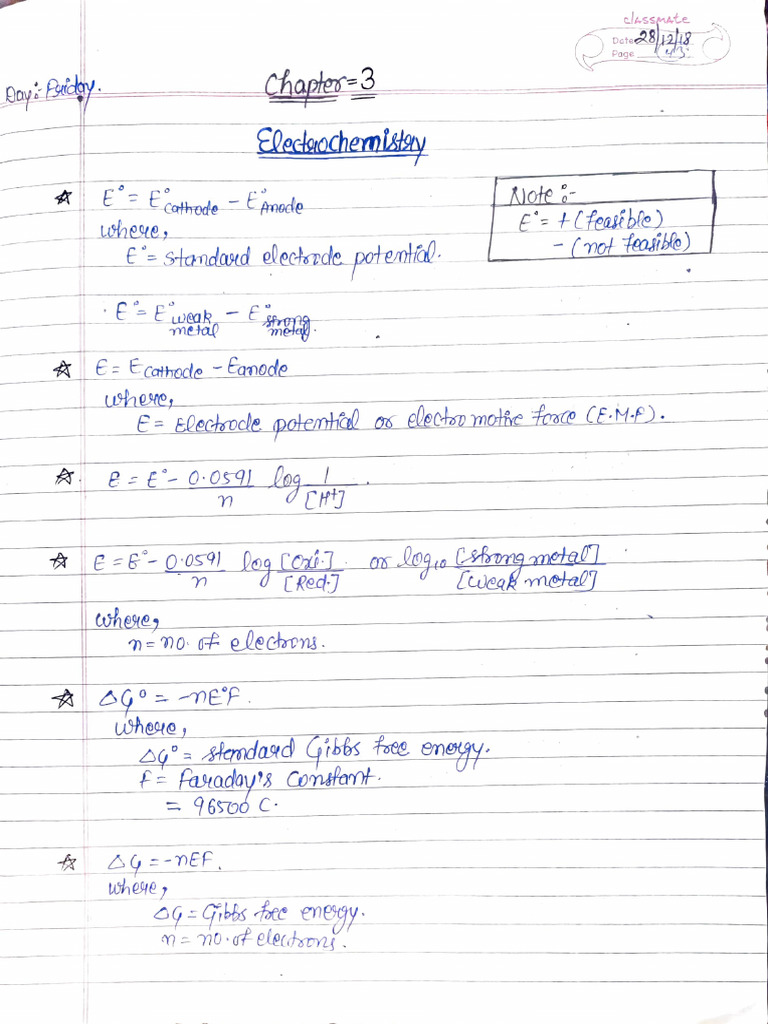 classmate
Date 28/12/18
Page 43
Day:- Friday.
Chapter=3
Electrochemistry
☆ E° = E°Cathode − E°Anode
where,
E° = standard electrode potential.
Note :-
E° = + (feasible)
− (not feasible)
· E° = E°weak metal − E°strong metal.
☆ E = Ecathode − Eanode
where,
E = Electrode potential or electromotive force (E.M.F).
☆ E = E° − 0.0591/n log 1/[H+].
☆ E = E° − 0.0591/n log [Oxi.]/[Red.] or log10 [strong metal]/[weak metal]
where,
n = no. of electrons.
☆ ΔG° = −nE°F.
where,
ΔG° = standard Gibbs free energy.
F = Faraday's Constant.
= 96500 C.
☆ ΔG = −nEF.
where,
ΔG = Gibbs free energy.
n = no. of electrons.